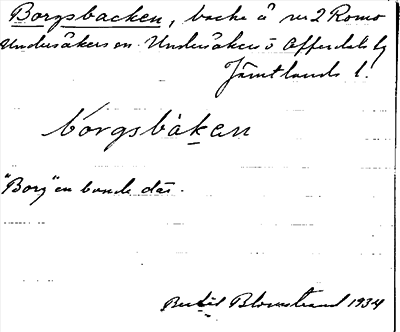 Borgsbacken, backe å nr 2 Romo
Undersåkers sn. Undersåkers o Offerdals tg
Jämtlands l.
bòrgsbàkan
"Borg" en bonde där.
Bertil Blomstrand 1934